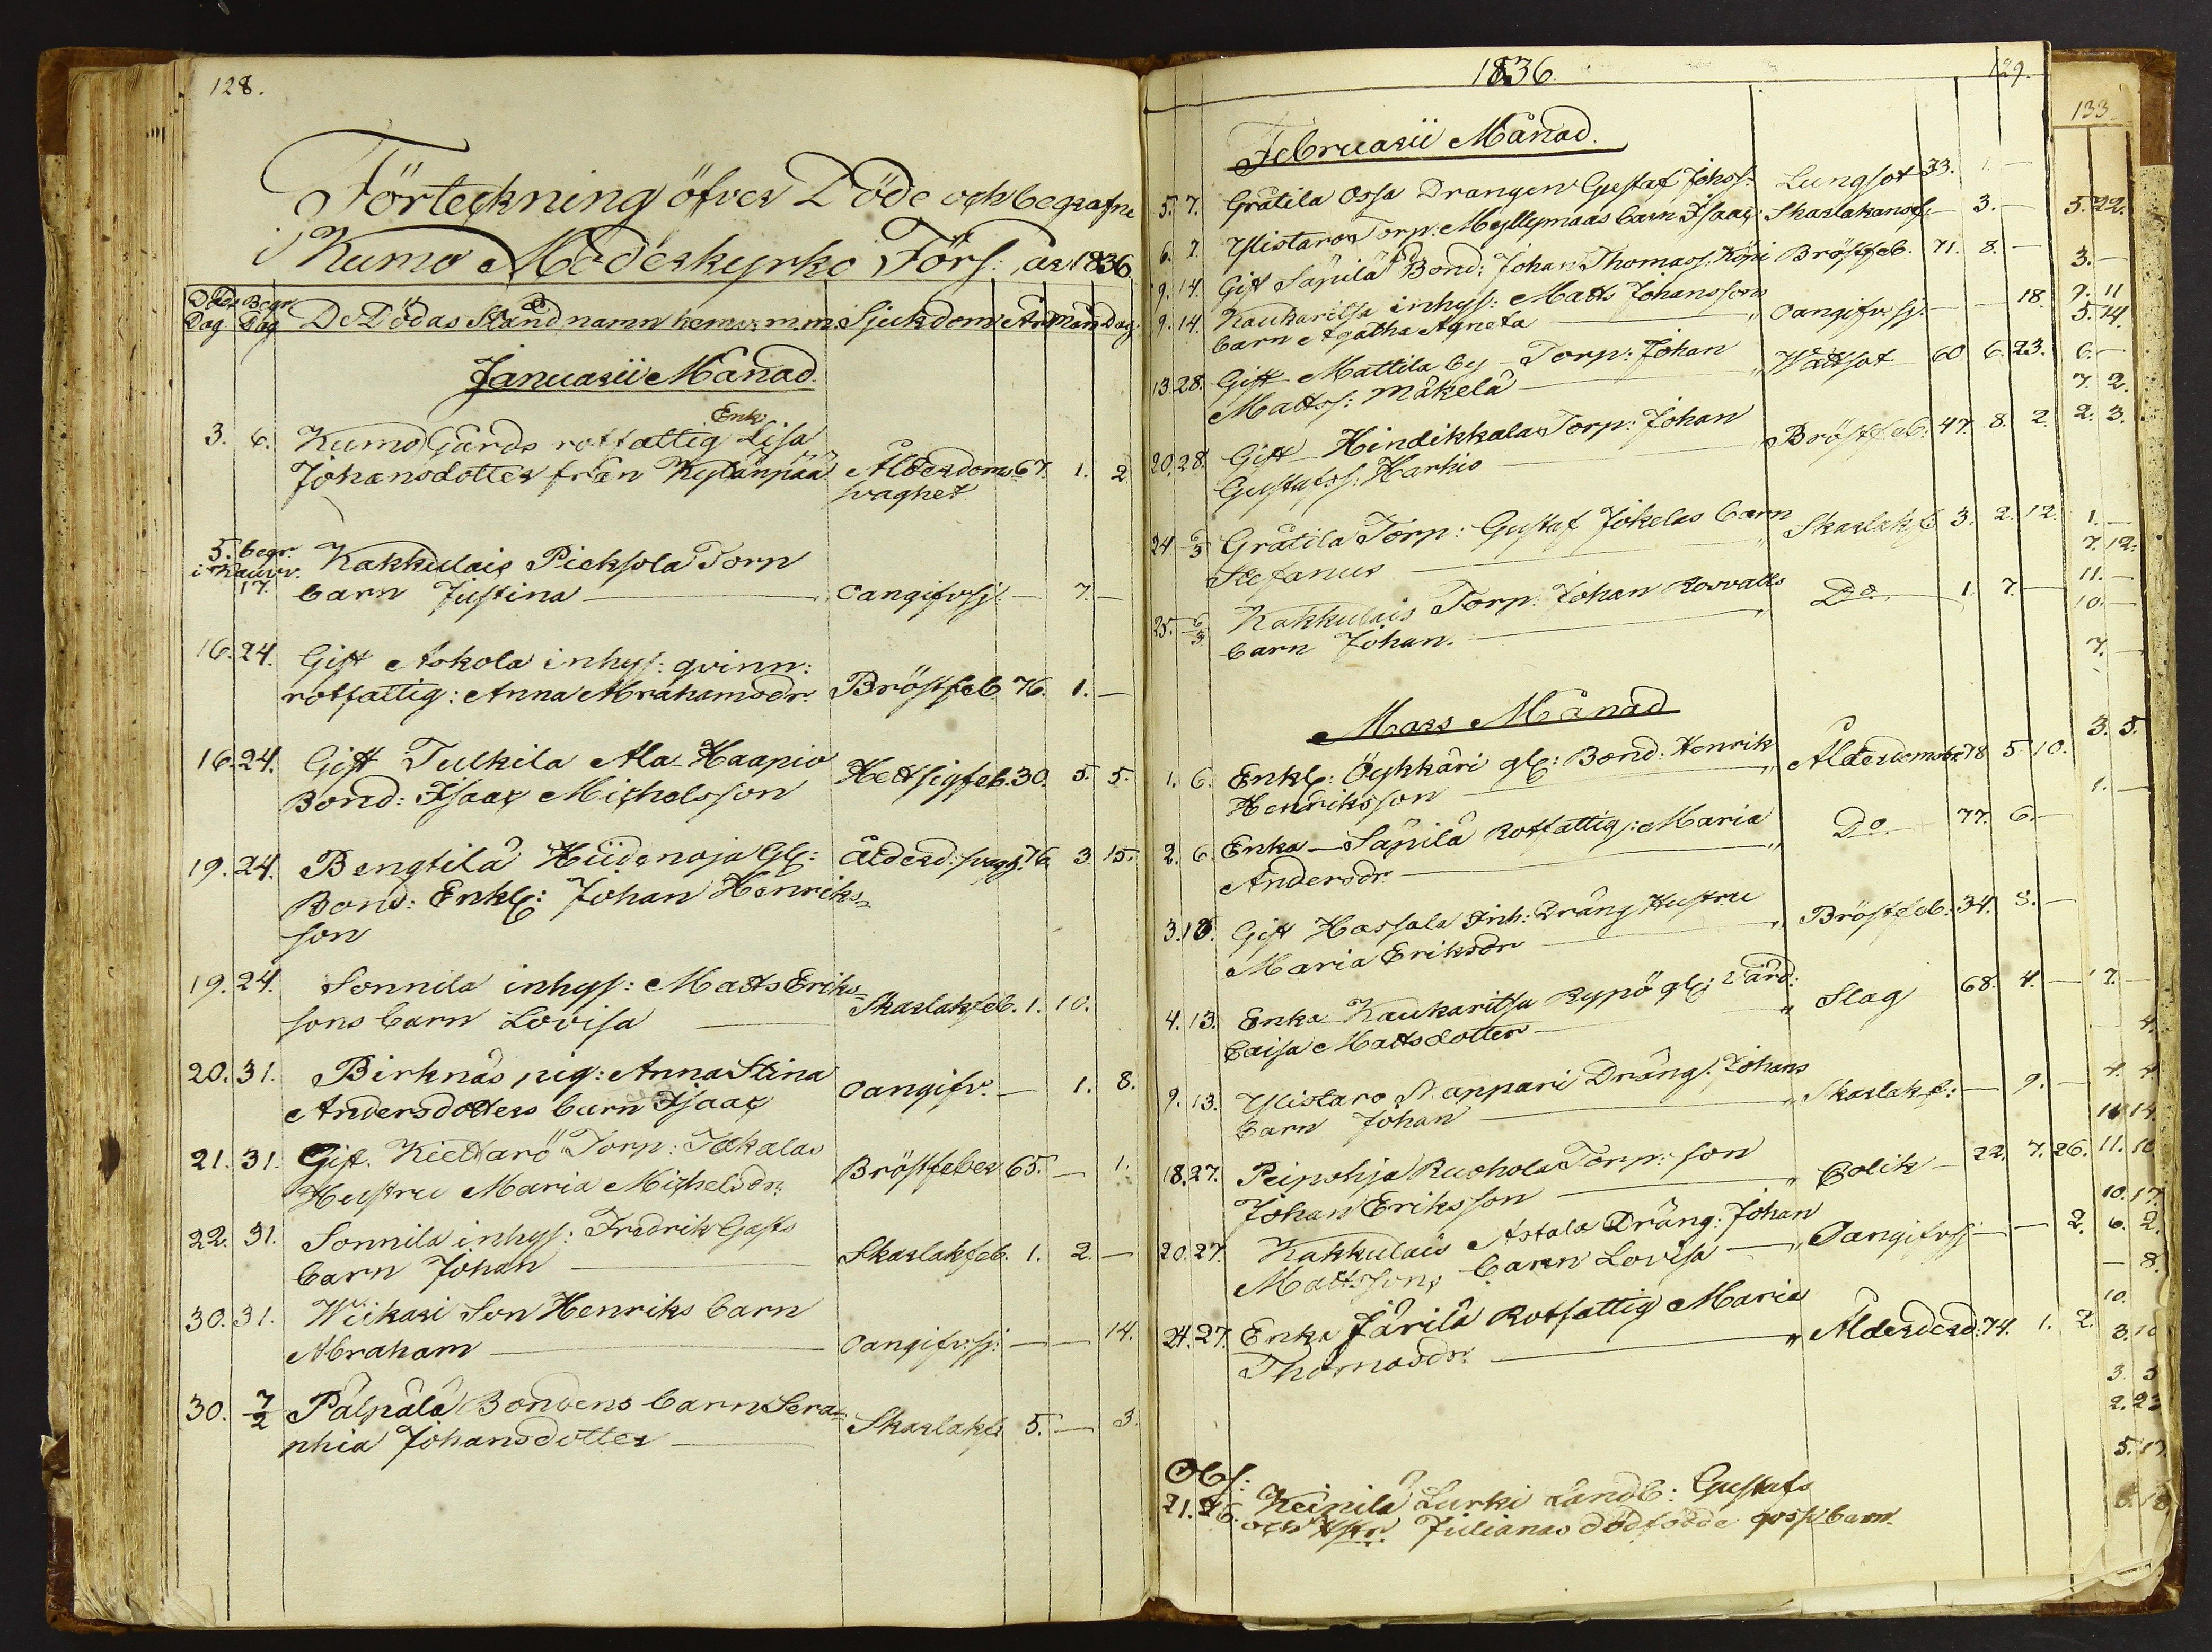 128.
Förteckning öfver Döde och begrafne
i Kumo Moderkyrko Förs: år 1836
Döds Dag Begr. Dag De Dödas Stånd namn hemv: m.m. Sjukdom År Mån Dag.
Januarii Månad.
Enk:
3. 6. Kumo Gårds rotfattig Lisa
Johansdotter från Kylänpää Ålderdoms 67. 1. 2
svaghet
5. begr. Kakkulais Picksola Torp
i Kauv.
17. barn Justina — Oangifvsj. — 7. —
16. 24. Gift Askola inhys: qvinn:
rotfattig: Anna Abrahamsdr. Bröstfeb. 76. 1. —
16. 24. Gift Tulkila Ala-Haapio Hetsigfeb. 30. 5. 5.
Bond: Isaac Michelsson
19. 24. Bengtilä Hiidenoja Gl: ålderd: svagh. 76. 3 15.
Bond: Enkl: Johan Henriks-
son
19. 24. Sonnila inhys: Matts Eriks-
sons barn Lovisa — Skarlakfeb. 1. 10.
20. 31. Birknäs pig: Anna Stina
Andersdotters barn Isaac Oangifv. — 1. 8.
21. 31. Gift. Kiettarö Torp: Takalas
Hustru Maria Michelsdr. Bröstfeber 65. — 1.
22. 31. Sonnila inhys: Fredrik Gasts
barn Johan — Skarlakfeb. 1. 2. —
30. 31. Wiikari Son Henriks barn
Abraham — Oangifv: sj: — — 14.
30. 7/2 Pälpälä Bondens barn Sera-
phia Johansdotter — Skarlakf: 5. — 3.
1836. 129.
Februarii Månad.
5. 7. Gråtila Ossa Drängen Gustaf Johss: Lungsot 33. 1. —
6. 7. Ylistaro Torp: Myllymaas barn Isaac Skarlakansf. — 3. —
9. 14. Gift Säpilä Bond: Johan Thomass: Köpi Bröstfeb. 71. 8. —
9. 14. Kaukaritsa inhys: Matts Johanssons
barn Agatha Agneta — Oangifv: sj. — — 18.
13. 28. Gift Mattila by Torp: Johan
Mattss: Mäkelä — Wattsot 60 6. 23.
20. 28. Gift Hindikkala Torp: Johan
Gustafss: Harhio — Bröstfeb: 47. 8. 2.
24 6/3 Gråtila Torp: Gustaf Jokelas barn
Stefanus — Skarlakf. 3. 2. 12.
25. 6/3 Kakkulais Torp: Johan Rosvalls
barn Johan. — Do. — 1. 7. —
Mars Månad
1. 6. Enkl: Öykkäri gl: Bond: Henrik
Henriksson — Ålderdomsbr. 78 5. 10.
2. 6. Enka — Säpilä Rotfattig: Maria
Andersdr. — Do. 77. 6. —
3. 13. Gift Hassala Inh: Dräng Hustru
Maria Eriksdr — Bröstfeb. 34. 8. —
4. 13. Enka Kaukaritsa Rypö gl: Värd:
Caisa Mattsdotter — Slag 68. 4. —
9. 13. Ylistaro Nappari Dräng: Johans
barn Johan — Skarlakf: — 9. —
18. 27. Peipohja Ruohola Torp: son
Johan Eriksson — Colik — 22. 7. 26.
20. 27. Kakkulais Astala Dräng: Johan
Mattssons barn Lovisa — Oangifvsj — — 2.
24. 27. Enka Järilä Rotfattig Maria
Thomasdr. — Ålderdesd: 74. 1. 2.
Obs:
21. 26. Keipilä Lurki Landb: Gustafs
och Hstr. Julianas dödfödde gossebarn.
133.
5. 22.
3. —
9. 11
5. 14.
6. —
7. 2.
2. 3.
1. —
7. 12.
11. —
10. —
7. —
3. 5.
1. —
7. —
4.
4. 4
11 14.
11. 10
10. 17.
6. 2.
— 8.
10.
3. 10
3. 5
2. 23
5. 17.